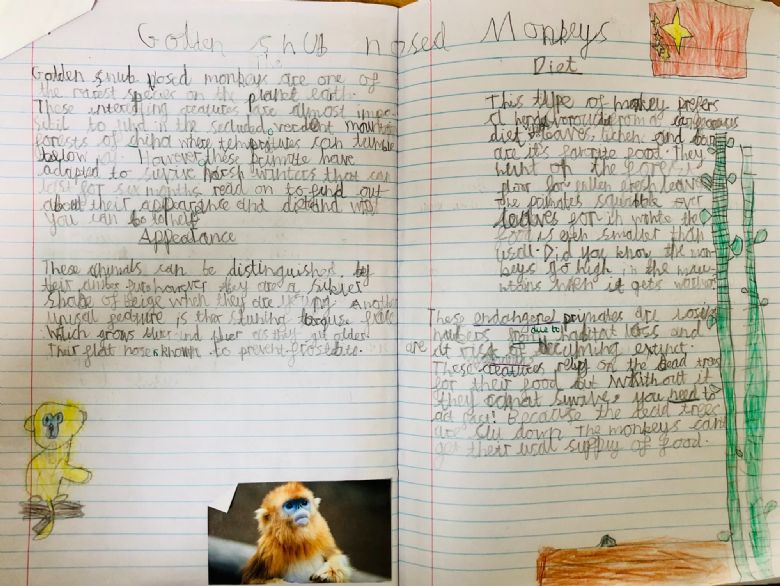 Golden snub nosed Monkeys
Golden snub nosed monkeys are one of
the rarest species on the planet earth.
These interesting creatures are almost
to find in the secluded mountain
forests of china where can tumble
below However these primate have
adapted to survive harsh winters that can
last for six months read on to find out
about their appearance and diet and
you can to help
Appearance
These animals can be distinguished by
their fur however they are a
shade of beige when they are young. Another
unusal feature is their stunning face
which grows bluer and bluer as they get older.
Their flat nose is known to prevent frostbite.
Diet
This type of monkey prefers
a
diet leaves, lichen and
are it's favorite food. They
hunt on the forest
floor for fallen fresh leaves
the primates squabble over
leaves for in winte the
food is even smaller than
usall. Did you know the mon-
keys go high in the moun-
tains when it gets
These endangered primates are losing
due to habitat loss and
are at risk of becuming extinct.
These relie on the dead trees
for their food but without it
they cannot survive you need to
act fast! Because the dead trees
are down The monkeys cant
get their usal supply of food.